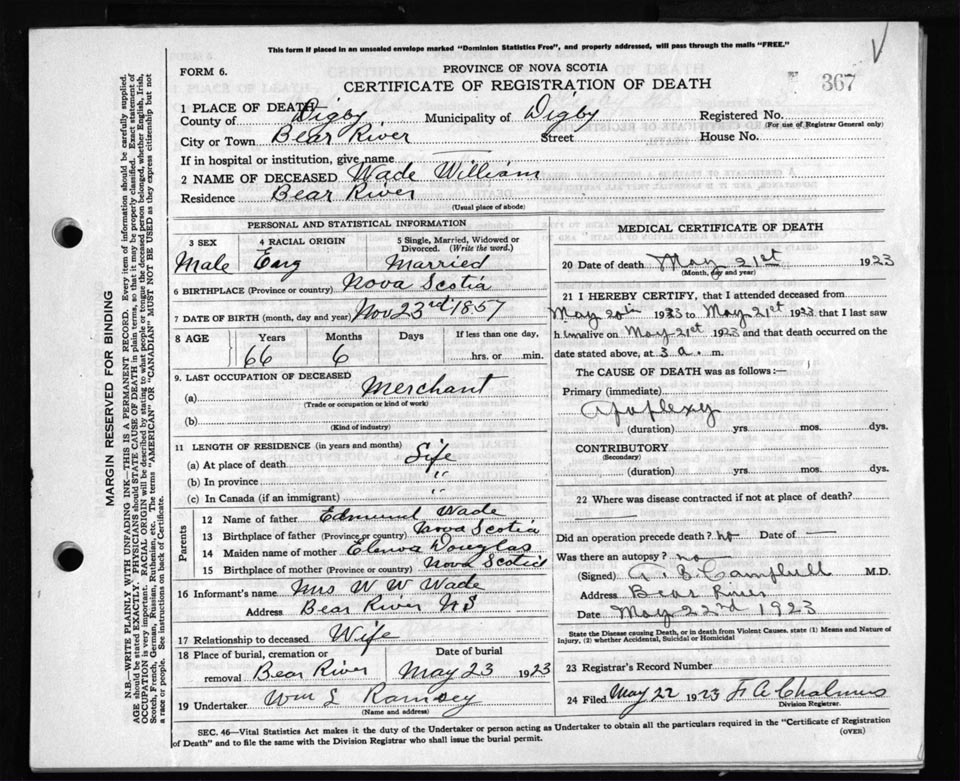 This form if placed in an unsealed envelope marked "Dominion Statistics Free", and properly addressed, will pass through the mails "FREE."
FORM 6.
PROVINCE OF NOVA SCOTIA
CERTIFICATE OF REGISTRATION OF DEATH
367
1 PLACE OF DEATH
County of Digby Municipality of Digby Registered No.
(For use of Registrar General only)
City or Town Bear River Street House No.
If in hospital or institution, give name
2 NAME OF DECEASED Wade William
Residence Bear River
(Usual place of abode)
PERSONAL AND STATISTICAL INFORMATION
3 SEX 4 RACIAL ORIGIN 5 Single, Married, Widowed or Divorced. (Write the word.)
Male Eng Married
6 BIRTHPLACE (Province or country) Nova Scotia
7 DATE OF BIRTH (month, day and year) Nov 23rd 1857
8 AGE Years Months Days If less than one day,
66 6 hrs. or min.
9. LAST OCCUPATION OF DECEASED
(a) Merchant
(Trade or occupation or kind of work)
(b)
(Kind of industry)
11 LENGTH OF RESIDENCE (in years and months)
(a) At place of death Life
(b) In province "
(c) In Canada (if an immigrant) "
Parents
12 Name of father Edmund Wade
13 Birthplace of father (Province or country) Nova Scotia
14 Maiden name of mother Douglas
15 Birthplace of mother (Province or country) Nova Scotia
16 Informant's name Mrs W W Wade
Address Bear River NS
17 Relationship to deceased Wife
18 Place of burial, cremation or removal Date of burial
Bear River May 23 1923
19 Undertaker Wm L Ramsey
(Name and address)
MEDICAL CERTIFICATE OF DEATH
20 Date of death May 21st 1923
(Month, day and year)
21 I HEREBY CERTIFY, that I attended deceased from
May 20th 1923 to May 21st 1923 that I last saw
him alive on May 21st 1923 and that death occurred on
date stated above, at 3 a. m.
The CAUSE OF DEATH was as follows:—
Primary (immediate)
Apoplexy
(duration) yrs. mos. dys.
CONTRIBUTORY
(Secondary)
(duration) yrs. mos. dys.
22 Where was disease contracted if not at place of death?
Did an operation precede death? no Date of —
Was there an autopsy? no
(Signed) Campbell M.D.
Address Bear River
Date May 22nd 1923
State the Disease causing Death, or in death from Violent Causes, state (1) Means and Nature of
Injury, (2) whether Accidental, Suicidal or Homicidal
23 Registrar's Record Number
24 Filed May 22 1923 F A Chalmers
Division Registrar.
SEC. 46—Vital Statistics Act makes it the duty of the Undertaker or person acting as Undertaker to obtain all the particulars required in the "Certificate of Registration
of Death" and to file the same with the Division Registrar who shall issue the burial permit.
(OVER)
MARGIN RESERVED FOR BINDING
N.B.—WRITE PLAINLY WITH UNFADING INK—THIS IS A PERMANENT RECORD. Every item of information should be carefully supplied.
AGE should be stated EXACTLY. PHYSICIANS should STATE CAUSE OF DEATH in plain terms, so that it may be properly classified. Exact statement of
OCCUPATION is very important. RACIAL ORIGIN will be described by stating to what people or tongue the deceased person belonged, whether English, Irish,
Scotch, French, German, Russian, Ruthenian, etc. The terms "AMERICAN" OR "CANADIAN" MUST NOT BE USED as they express citizenship but not
a race or people. See instructions on back of Certificate.